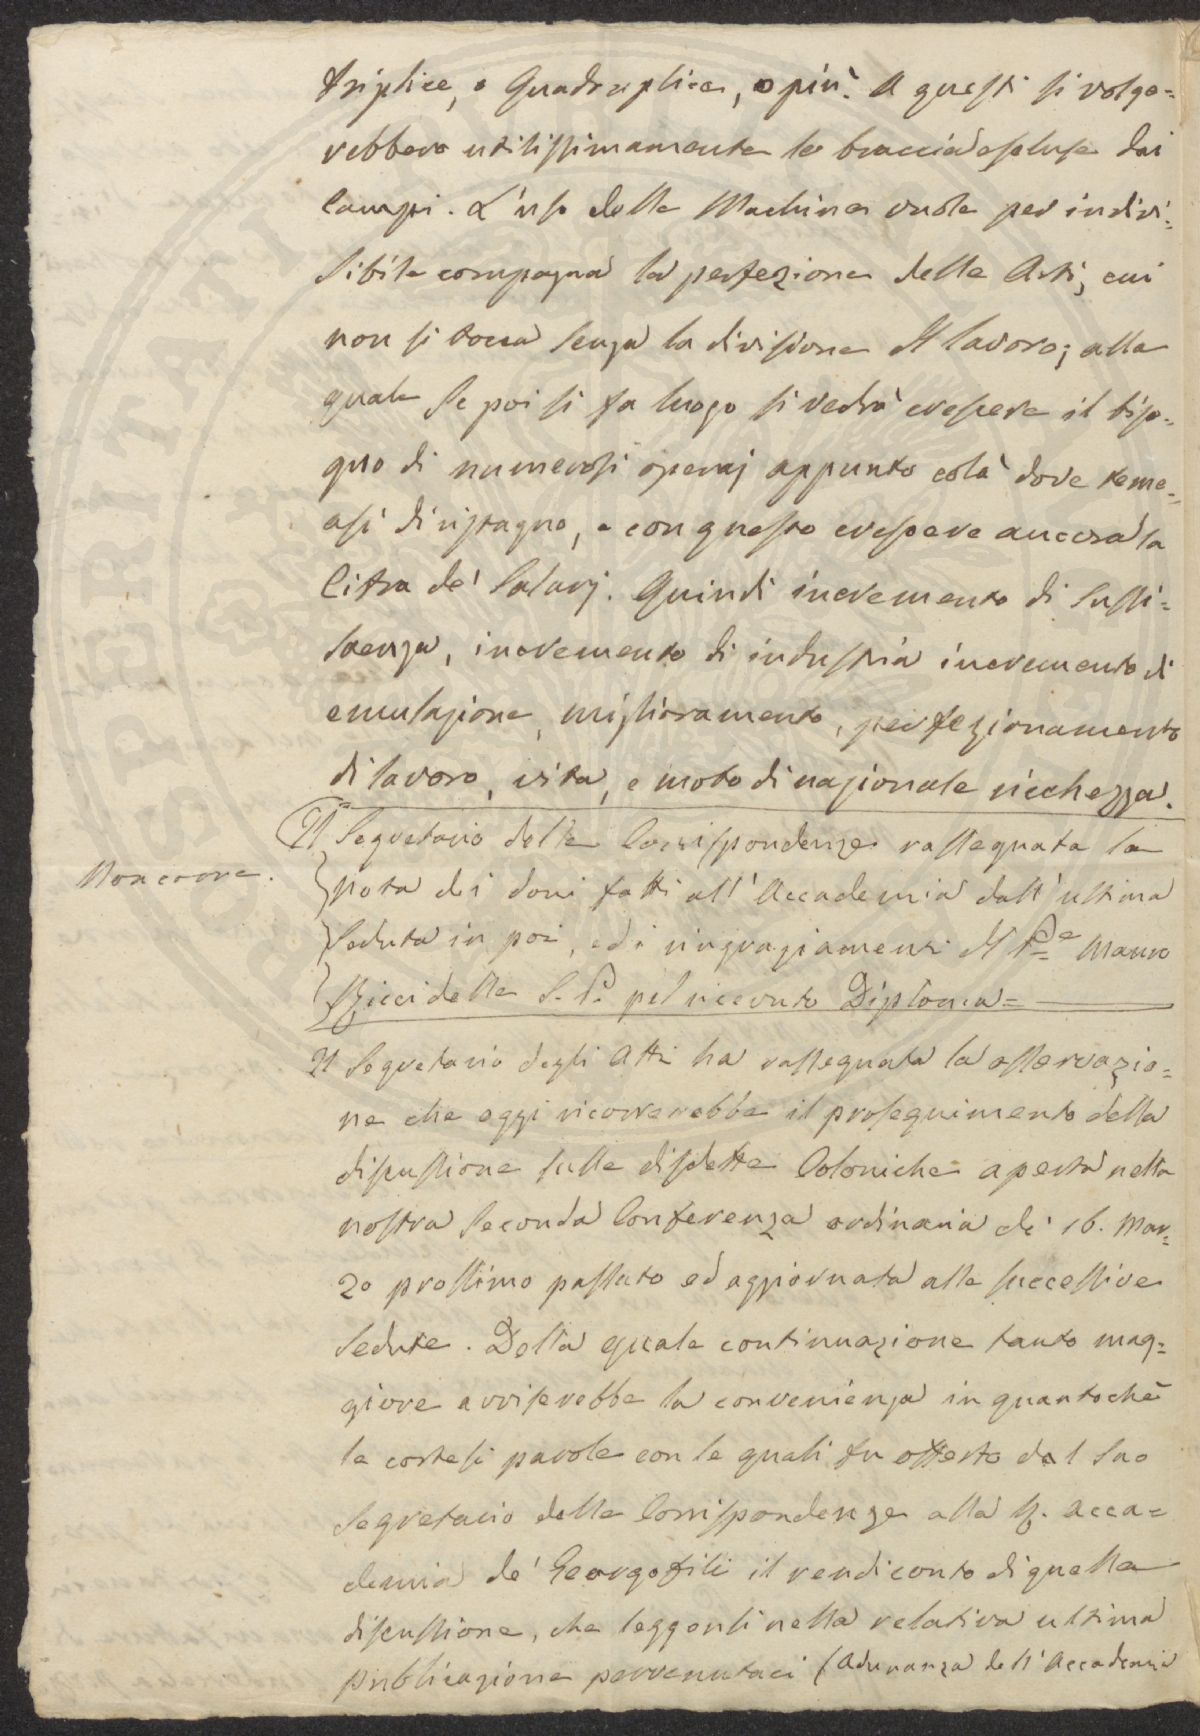 triplice, o Quadruplice, o più. A questi si volge=
rebbero utilissimamente le braccia escluse dai
Campi. L'uso delle Machine vuole per indivi=
sibile compagna la perfezione delle Arti, cui
non si tocca senza la divisione del lavoro; alla
quale se poi si fa luogo si vedrà crescere il biso=
gno di numerosi operaj appunto colà dove teme=
asi di ristagno, e con questo crescere ancora la
Cifra de' Salarj. Quindi incremento di sussi=
stenza, incremento di industria incremento di
emulazione, miglioramento, perfezionamento
di lavoro, vita, e moto di nazionale ricchezza.
Il Segretario delle Corrispondenze rassegnata la
Non corre.
nota dei doni fatti all'Accademia dall'ultima
Seduta in poi, ed i ringraziamenti del Pre Mauro
Ricci delle S. P. pel ricevuto Diploma=
Il Segretario degli Atti ha rassegnata la osservazio=
ne che oggi ricorrerebbe il proseguimento della
discussione sulle disdette Coloniche aperta nella
nostra Seconda Conferenza ordinaria de' 16. Mar=
zo prossimo passato ed aggiornata alle successive
Sedute. Della quale continuazione tanto mag=
giore avviserebbe la convenienza in quantochè
le cortesi parole con le quali fu offerto dal suo
Segretario delle Corrispondenze alla R. Acca=
demia de' Georgofili il rendiconto di quella
discussione, che leggonsi nella relativa ultima
pubblicazione pervenutaci (Adunanza dell'Accademia